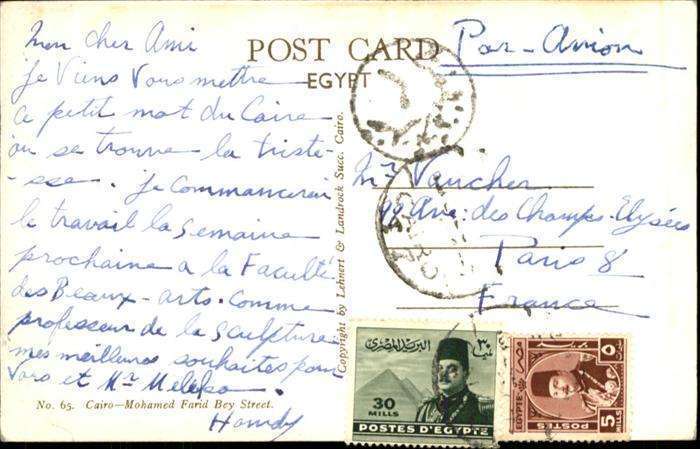 Mon cher Ami
Je Viens Vous mettre
ce petit mot du Caire
ou se trouve la triste-
-sse. Je Commencerai
le travail la Semaine
prochaine a la Faculté
des Beaux-arts. Comme
professeur de la sculpture
mes meilleures souhaites pour
Vous et Mr
Hamdy
No. 65. Cairo—Mohamed Farid Bey Street.
Copyright by Lehnert & Landrock Succ. Cairo.
POST CARD
EGYPT
Par-Avion
Mr Vaucher
99 Ave: des Champs-Elysées
Paris 8e
France
البريد المصرى
٣٠
30
MILLS
POSTES D'EGYPTE
مصر
٥
EGYPTE
5
MILLS